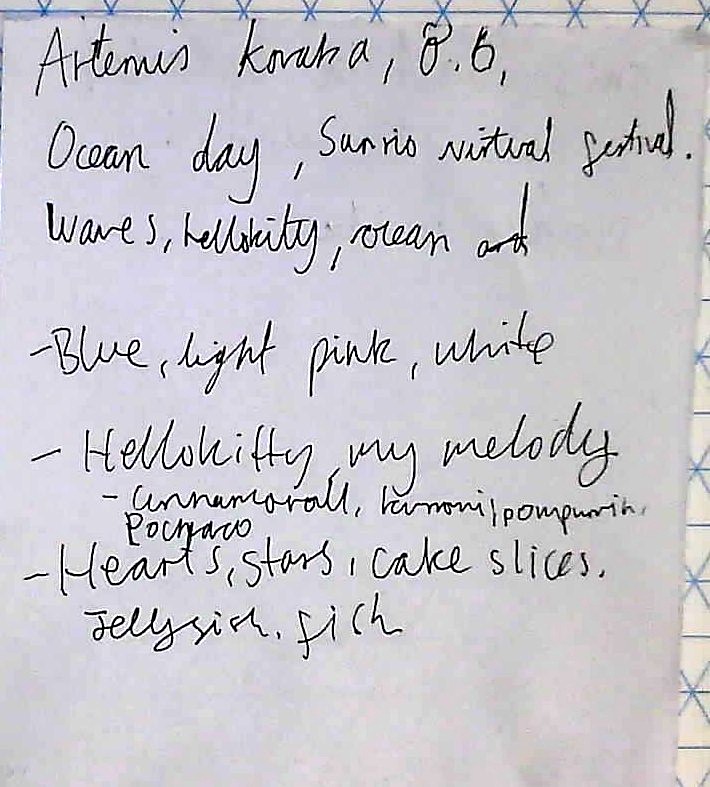 Artemis kovaha, 8.6,
Ocean day, Sanrio virtual festival.
Waves, hellokitty, ocean and
-Blue, light pink, white
- Hellokitty, my melody
- Cinnamorall, kuromi, pompurin,
Pochaco
-Hearts, stars, cake slices.
Jellyfish. fish